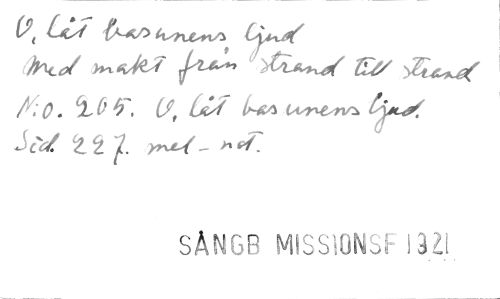 O, låt basunens ljud
Med makt från strand till strand
N:o. 205. O, låt basunens ljud.
Sid. 227. mel-not.
SÅNGB MISSIONSF 1921